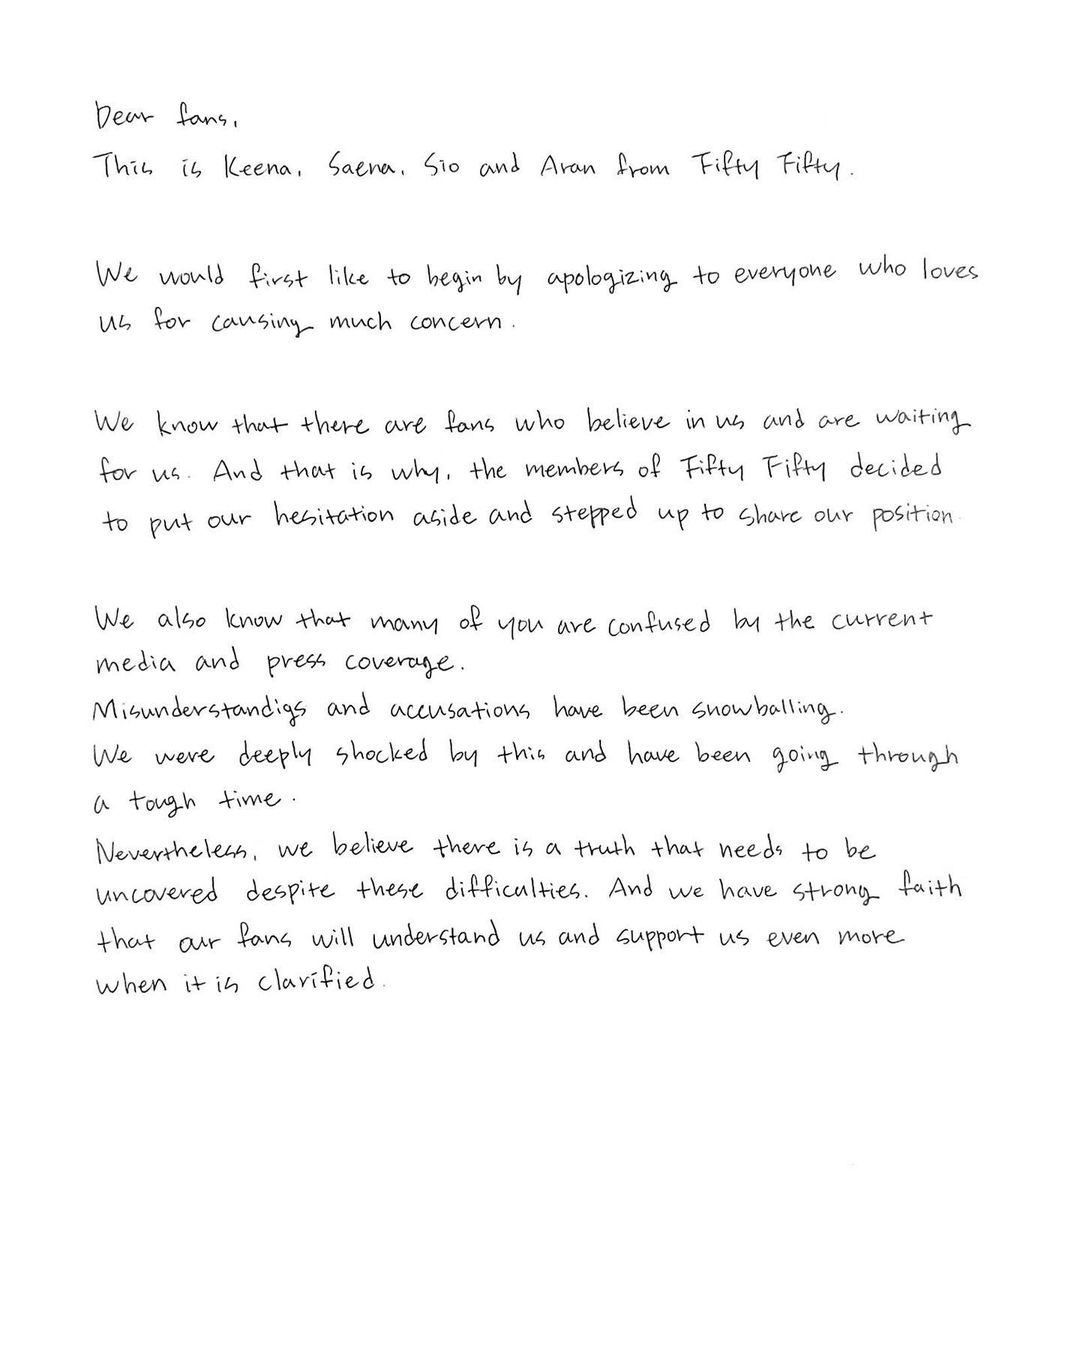 Dear fans,
This is Keena, Saena, Sio and Aran from Fifty Fifty.
We would first like to begin by apologizing to everyone who loves
us for causing much concern.
We know that there are fans who believe in us and are waiting
for us. And that is why, the members of Fifty Fifty decided
to put our hesitation aside and stepped up to share our position.
We also know that many of you are confused by the current
media and press coverage.
Misunderstandigs and accusations have been snowballing.
We were deeply shocked by this and have been going through
a tough time.
Nevertheless, we believe there is a truth that needs to be
uncovered despite these difficulties. And we have strong faith
that our fans will understand us and support us even more
when it is clarified.